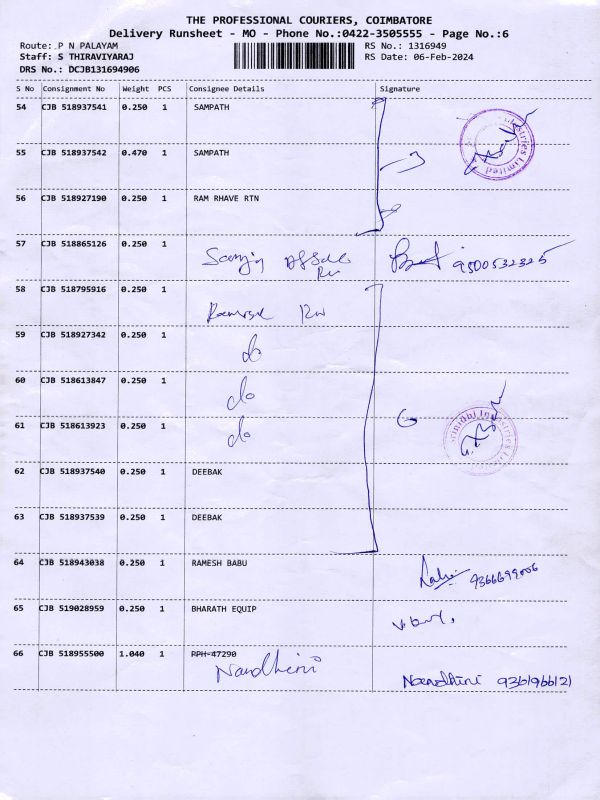 THE PROFESSIONAL COURIERS, COIMBATORE
Delivery Runsheet - MO - Phone No.:0422-3505555 - Page No.:6
Route: P N PALAYAM
RS No.: 1316949
Staff: S THIRAVIYARAJ
RS Date: 06-Feb-2024
DRS No.: DCJB131694906
S No Consignment No Weight PCS Consignee Details Signature
54 CJB 518937541 0.250 1 SAMPATH
55 CJB 518937542 0.470 1 SAMPATH
3
56 CJB 518927190 0.250 1 RAM RHAVE RTN
57 CJB 518865126 0.250 1
9500532325
58 CJB 518795916 0.250 1
59 CJB 518927342 0.250 1 do
60 CJB 518613847 0.250 1 do
61 CJB 518613923 0.250 1 do
6
62 CJB 518937540 0.250 1 DEEBAK
63 CJB 518937539 0.250 1 DEEBAK
64 CJB 518943038 0.250 1 RAMESH BABU
65 CJB 519028959 0.250 1 BHARATH EQUIP
66 CJB 518955500 1.040 1 RPH-47290
Nandhini
Nandhini 9361966121